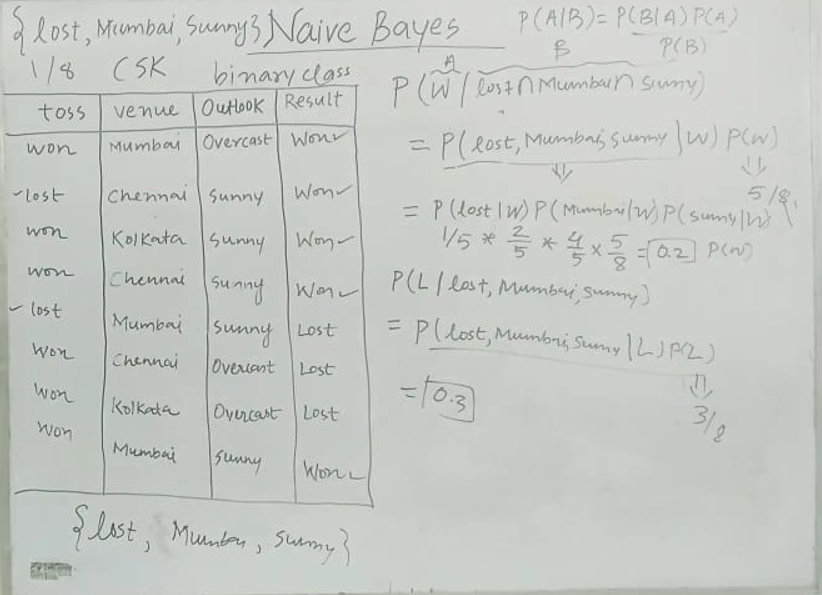 {lost, Mumbai, Sunny} Naive Bayes
P(A/B) = P(B|A) P(A)
P(B)
1/8 CSK binary class
toss venue Outlook Result
won Mumbai Overcast Won ✓
✓ lost Chennai sunny Won ✓
won Kolkata sunny Won ✓
won Chennai sunny Won ✓
✓ lost Mumbai sunny Lost
Won Chennai Overcast Lost
Won Kolkata Overcast Lost
Won Mumbai sunny Won ✓
{lost, Mumbai, sunny}
A B
P(W / lost ∩ Mumbai ∩ sunny)
= P(lost, Mumbai, sunny | W) P(W)
⇓ ⇓
5/8
= P(lost | W) P(Mumbai | W) P(sunny | W)
1/5 * 2/5 * 4/5 × 5/8 = 0.2 P(W)
P(L / lost, Mumbai, sunny)
= P(lost, Mumbai, sunny | L) P(L)
⇓
= 0.3
3/8